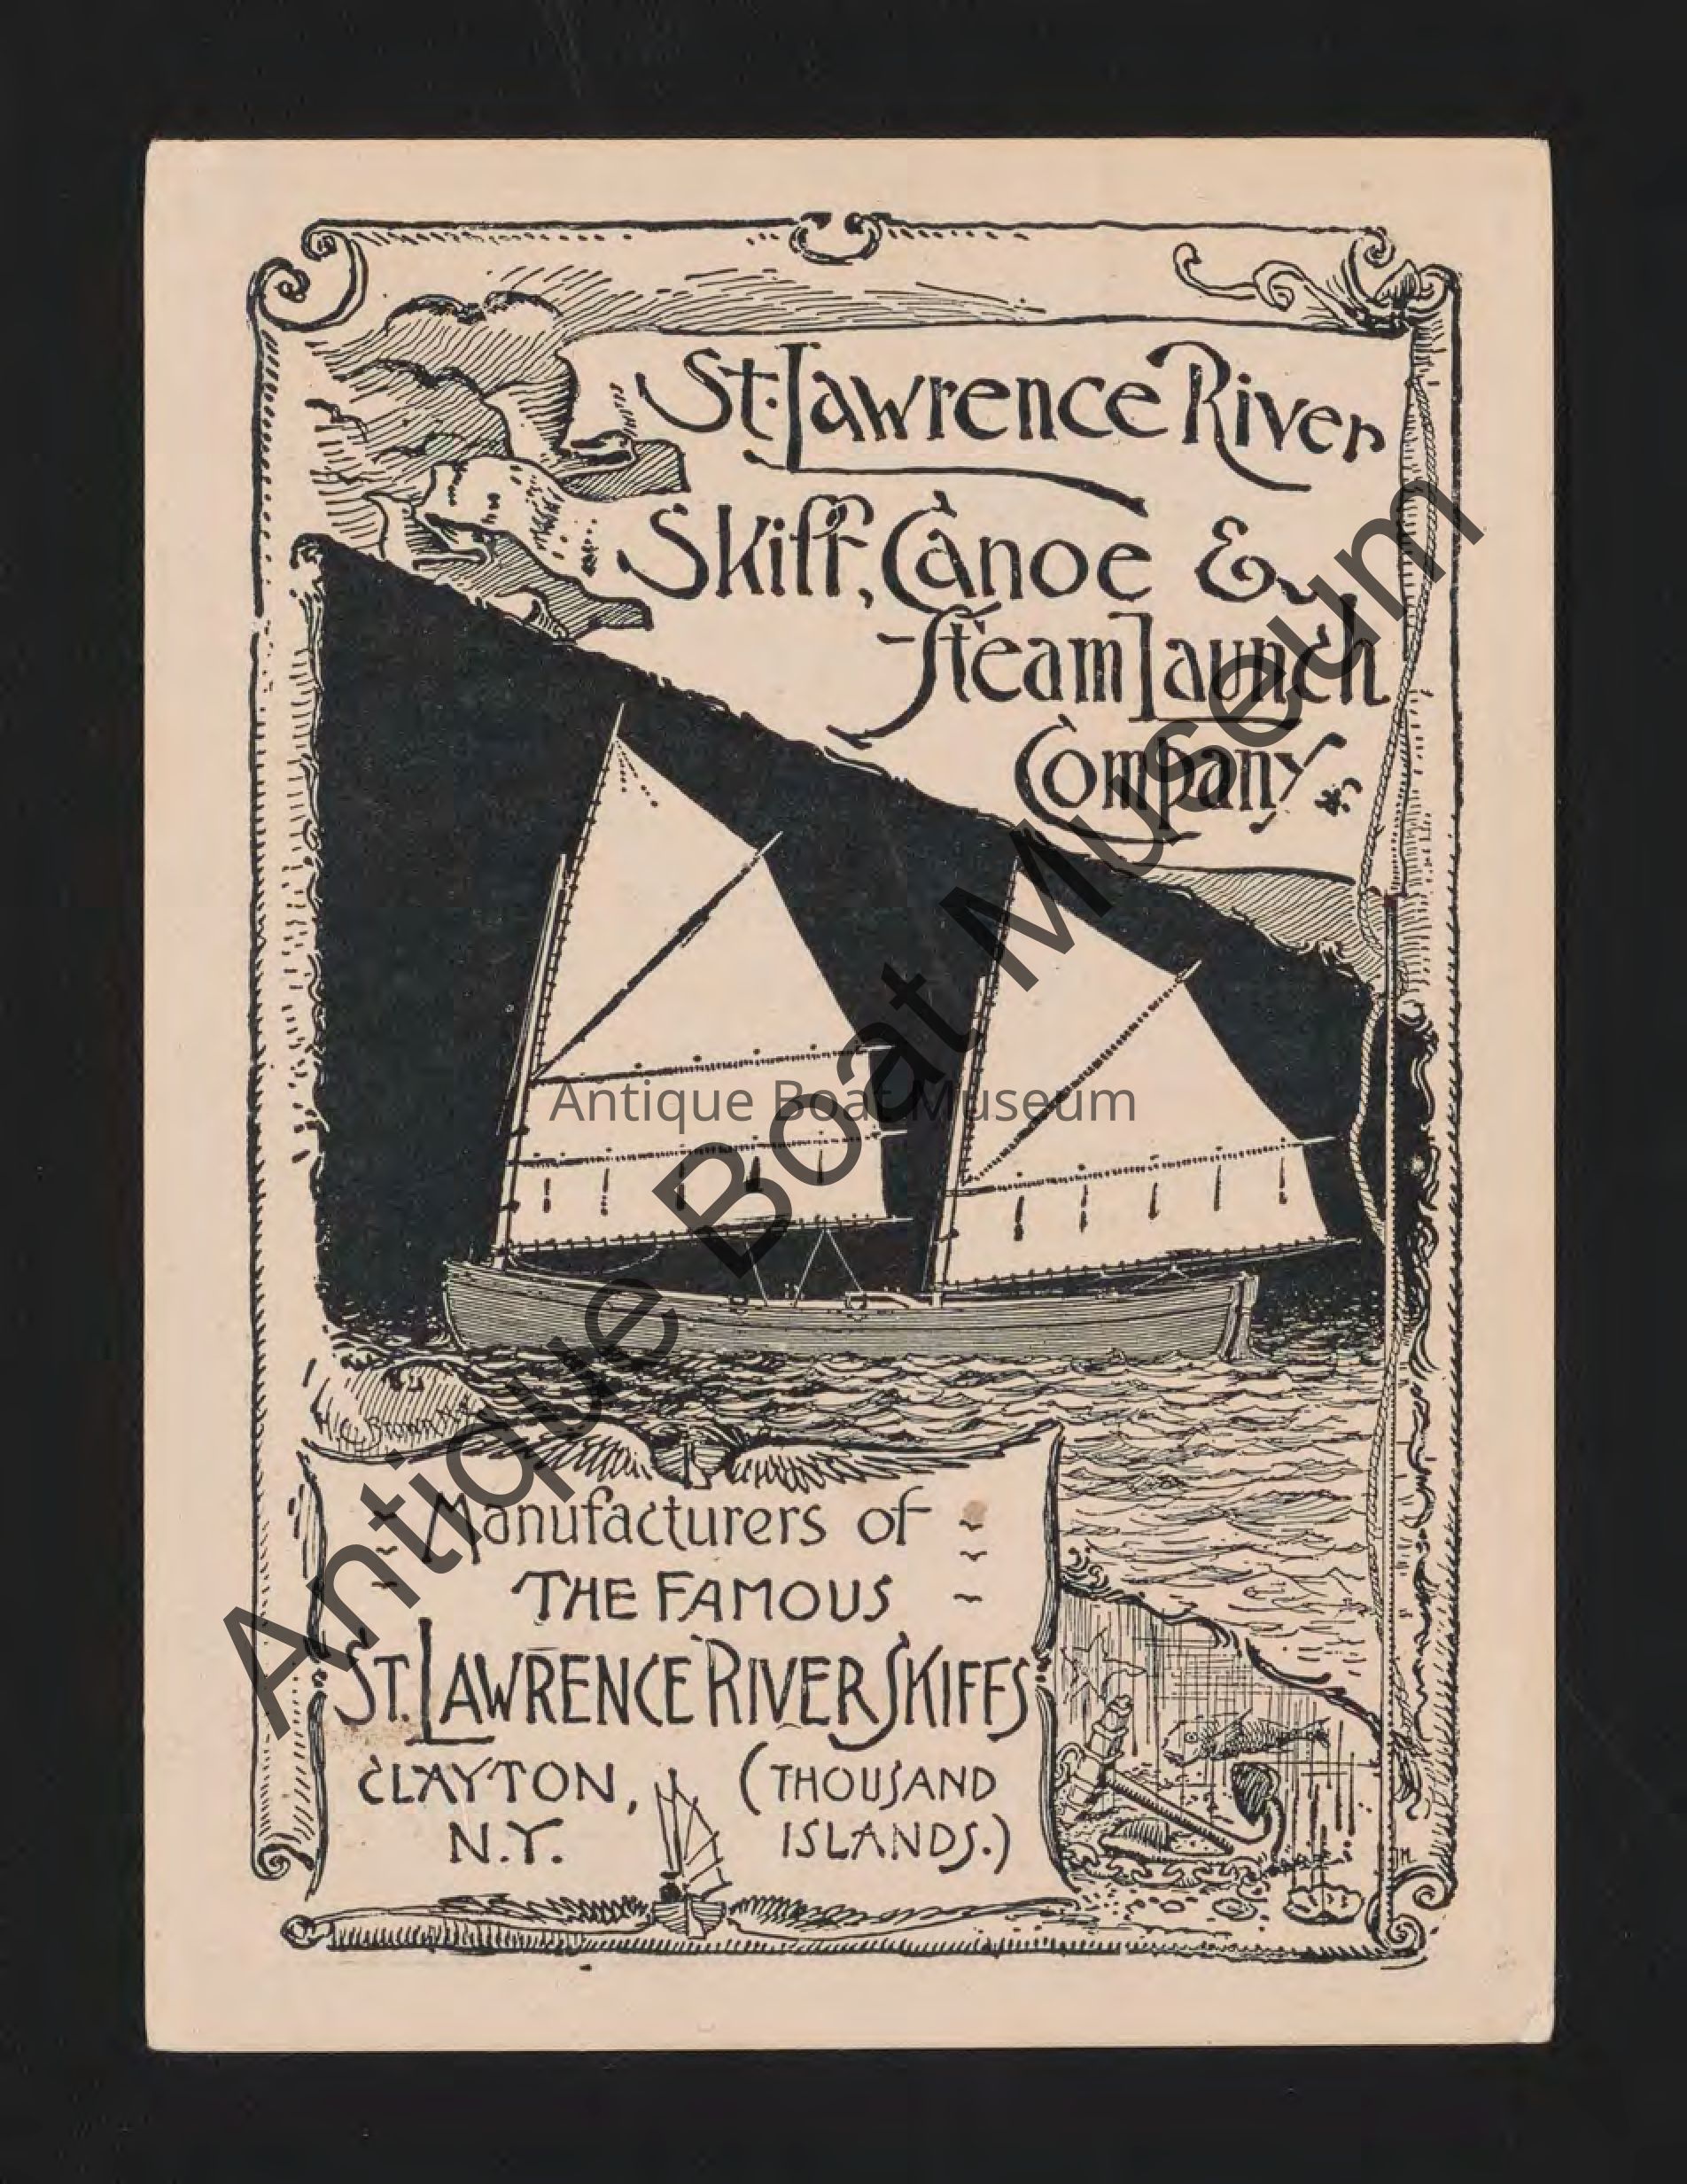 St. Lawrence River
Skiff, Canoe &
Steam Launch
Company
Antique Boat Museum
Antique Boat Museum
H.C. Brown N.Y.
Manufacturers of
THE FAMOUS
ST. LAWRENCE RIVER SKIFFS
CLAYTON,
N.Y.
(THOUSAND
ISLANDS.)